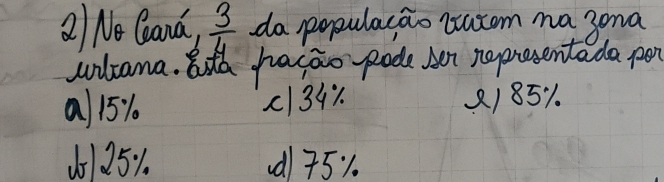 2) No Ceará, 3/4 da população vivem na zona
urbana. Esta fração pode ser representada por
a) 15% c) 34% e) 85%
b) 25% d) 75%